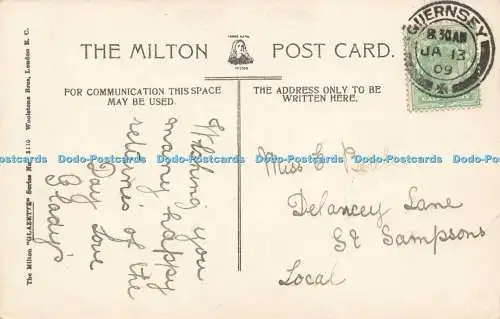 THE MILTON POST CARD.
MILTON
FOR COMMUNICATION THIS SPACE
MAY BE USED.
THE ADDRESS ONLY TO BE
WRITTEN HERE.
GUERNSEY
8.30AM
JA 13
09
Wishing you
many happy
returns of the
Day love
Gladys
Miss E
Delancey Lane
St Sampsons
Local
The Milton "GLAZETTE" Series No. Woolstone Bros, London E.C.
Dodo-Postcards Dodo-Postcards Dodo-Postcards Dodo-Postcards Dodo-Postcards Dodo-Postcards